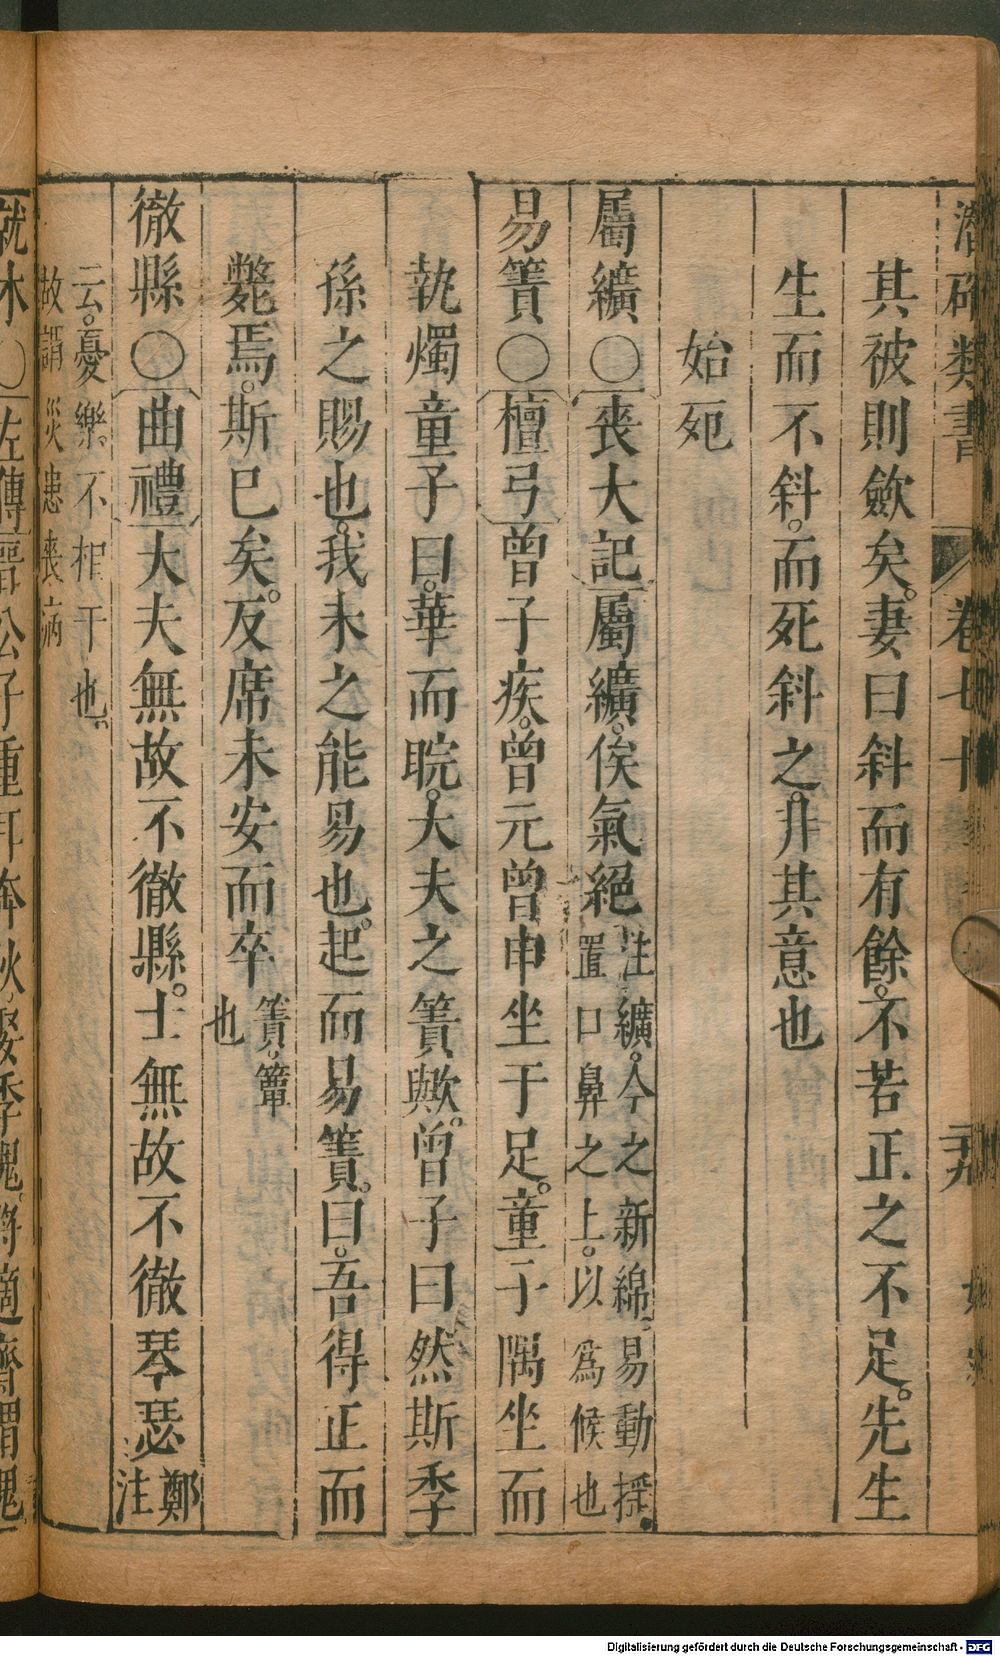 潛確類書 卷七十 二十九
其被則斂矣。妻曰斜而有餘。不若正之不足。先生
生而不斜。而死斜之。非其意也
始死
屬纊○喪大記屬纊。俟氣絕注纊。今之新綿。易動揺。置口鼻之上。以爲候也
易簀○檀弓曾子疾。曾元曾申坐于足。童子隅坐而
執燭童子曰。華而睆。大夫之簀歟。曾子曰然斯季
孫之賜也。我未之能易也。起而易簀。曰。吾得正而
斃焉。斯巳矣。反席未安而卒簀。簞也
徹縣○曲禮大夫無故不徹縣。士無故不徹琴瑟鄭注
云。憂樂不相干也。故謂災患喪病
就木○左傳晉公子重耳奔狄。娶季隗。將適齊謂隗
Digitalisierung gefördert durch die Deutsche Forschungsgemeinschaft - DFG